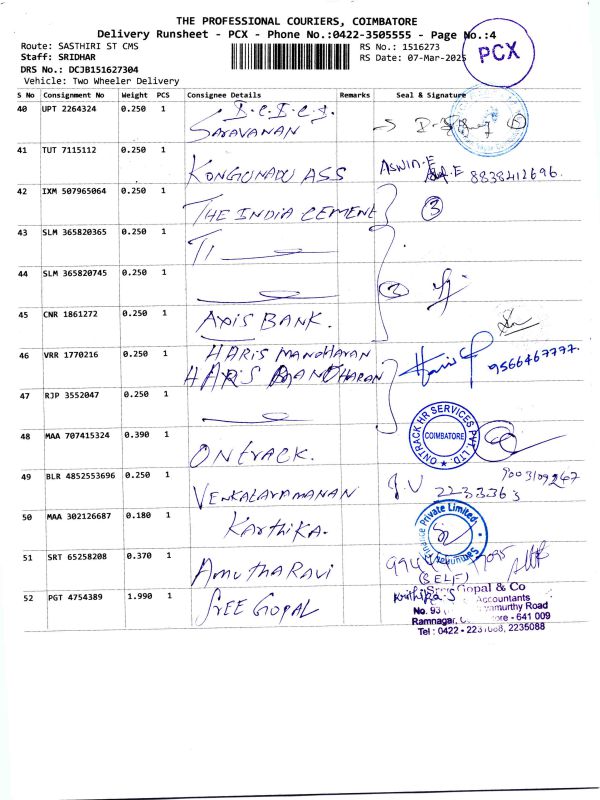 THE PROFESSIONAL COURIERS, COIMBATORE
Delivery Runsheet - PCX - Phone No.:0422-3505555 - Page No.:4
Route: SASTHIRI ST CMS
RS No.: 1516273
Staff: SRIDHAR
RS Date: 07-Mar-2025
PCX
DRS No.: DCJB151627304
Vehicle: Two Wheeler Delivery
S No Consignment No Weight PCS Consignee Details Remarks Seal & Signature
40 UPT 2264324 0.250 1
SARAVANAN
41 TUT 7115112 0.250 1 KONGUNADU ASS
ASWIN.E
8838412696.
42 IXM 507965064 0.250 1 THE INDIA CEMENT 3
43 SLM 365820365 0.250 1
44 SLM 365820745 0.250 1
45 CNR 1861272 0.250 1 AXIS BANK.
46 VRR 1770216 0.250 1 HARIS MANOHARAN
HARIS MANOHARAN
9566467777.
47 RJP 3552047 0.250 1
48 MAA 707415324 0.390 1 ONTRACK.
ONTRACK HR SERVICES PVT. LTD.
COIMBATORE
49 BLR 4852553696 0.250 1 VENKALARAMANAN
J.V
50 MAA 302126687 0.180 1 Karthika.
Finance Private Limited
51 SRT 65258208 0.370 1 AMUTHA RAVI
(SELF)
52 PGT 4754389 1.990 1 SREE GOPAL
Gopal & Co
Accountants
No. 93
amurthy Road
Ramnagar,
ore - 641 009
Tel : 0422 - 2235088